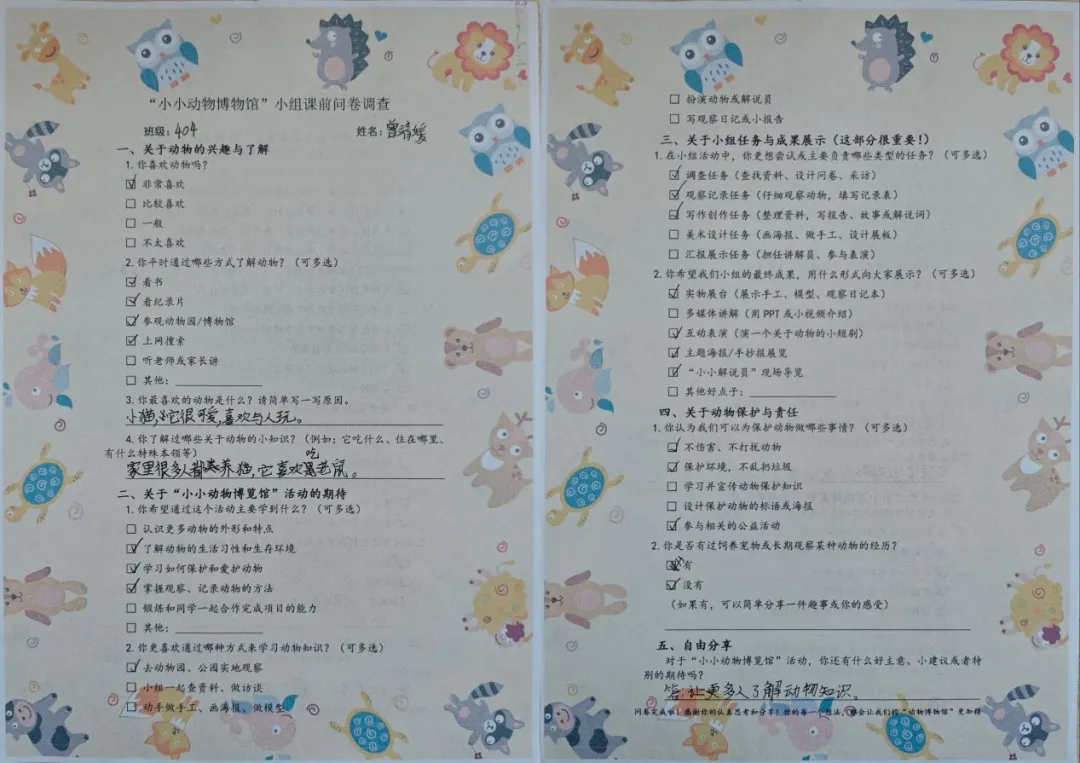 “小小动物博物馆”小组课前问卷调查
班级：404 姓名：曾婧媛
一、关于动物的兴趣与了解
1. 你喜欢动物吗？
☑ 非常喜欢
☐ 比较喜欢
☐ 一般
☐ 不太喜欢
2. 你平时通过哪些方式了解动物？（可多选）
☑ 看书
☑ 看纪录片
☑ 参观动物园/博物馆
☑ 上网搜索
☐ 听老师或家长讲
☐ 其他：
3. 你最喜欢的动物是什么？请简单写一写原因。
小猫，它很可爱，喜欢与人玩。
4. 你了解过哪些关于动物的小知识？（例如：它吃什么、住在哪里、
有什么特殊本领等）
家里很多人都养猫，它喜欢吃老鼠。
二、关于“小小动物博览馆”活动的期待
1. 你希望通过这个活动主要学到什么？（可多选）
☐ 认识更多动物的外形和特点
☑ 了解动物的生活习性和生存环境
☑ 学习如何保护和爱护动物
☑ 掌握观察、记录动物的方法
☐ 锻炼和同学一起合作完成项目的能力
☐ 其他：
2. 你更喜欢通过哪种方式来学习动物知识？（可多选）
☑ 去动物园、公园实地观察
☐ 小组一起查资料、做访谈
☐ 动手做手工、画海报、做模型
☐ 扮演动物或解说员
☐ 写观察日记或小报告
三、关于小组任务与成果展示（这部分很重要！）
1. 在小组活动中，你更想尝试或主要负责哪些类型的任务？（可多选）
☑ 调查任务（查找资料、设计问卷、采访）
☑ 观察记录任务（仔细观察动物，填写记录表）
☑ 写作创作任务（整理资料，写报告、故事或解说词）
☐ 美术设计任务（画海报、做手工、设计展板）
☐ 汇报展示任务（担任讲解员、参与表演）
2. 你希望我们小组的最终成果，用什么形式向大家展示？（可多选）
☑ 实物展台（展示手工、模型、观察日记本）
☐ 多媒体讲解（用PPT或小视频介绍）
☑ 互动表演（演一个关于动物的小短剧）
☑ 主题海报/手抄报展览
☑ “小小解说员”现场导览
☐ 其他好点子：
四、关于动物保护与责任
1. 你认为我们可以为保护动物做哪些事情？（可多选）
☑ 不伤害、不打扰动物
☑ 保护环境，不乱扔垃圾
☐ 学习并宣传动物保护知识
☐ 设计保护动物的标语或海报
☑ 参与相关的公益活动
2. 你是否有过饲养宠物或长期观察某种动物的经历？
有
☑ 没有
（如果有，可以简单分享一件趣事或你的感受）
五、自由分享
对于“小小动物博览馆”活动，你还有什么好主意、小建议或者特
别的期待吗？
让更多人了解动物知识。
问卷完成啦！感谢你的认真思考和分享！你的每一个想法，都会让我们的“动物博物馆”更加精